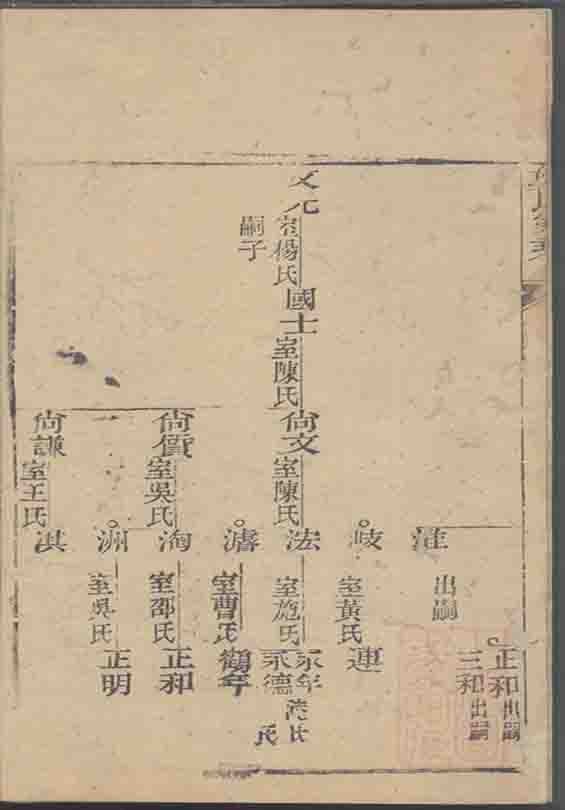 文元
室楊氏
嗣子
國士
室陳氏
尚文
室陳氏
尚賓
室吳氏
尚謙
室王氏
淮
岐
法
濬
淘
洲
淇
出嗣
室黃氏
室施氏
室曹氏
室邵氏
室吳氏
正和出嗣
三和出嗣
連
永年
氏
永德
氏
鶴年
正和
正明